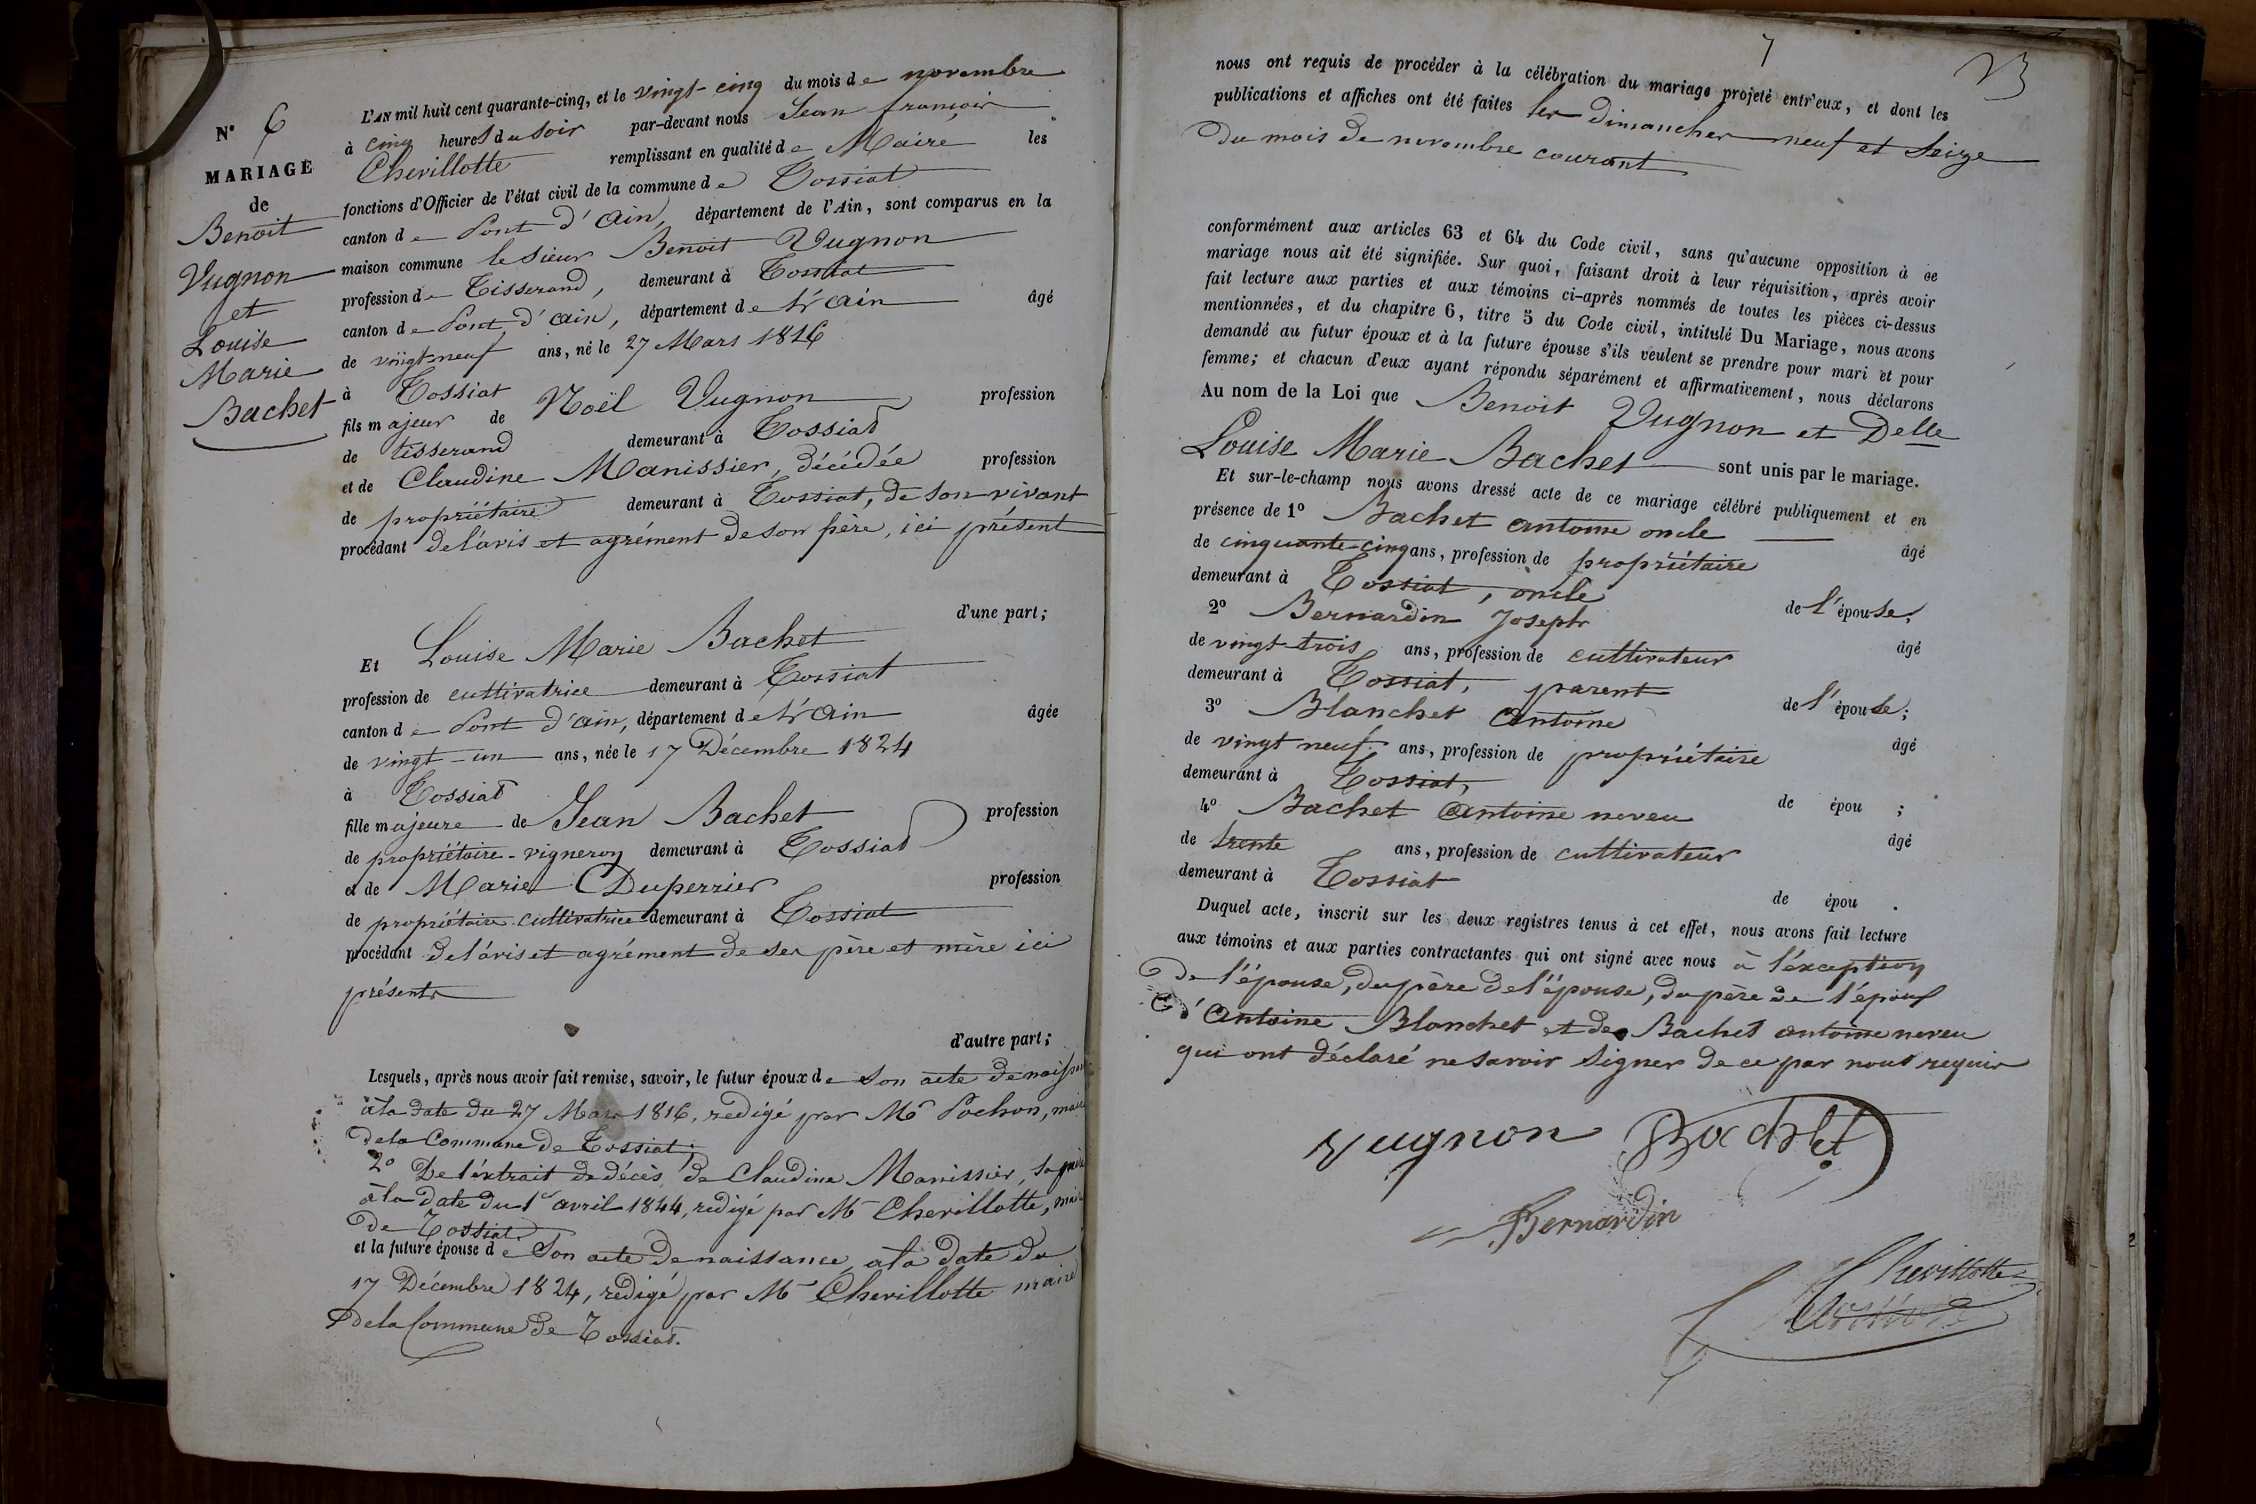 N° 6
MARIAGE
de
Benoit
Vugnon
et
Louise
Marie
Bachet
L'AN mil huit cent quarante-cinq, et le vingt-cinq du mois de novembre
à cinq heures du soir par-devant nous Jean françois
Chevillotte remplissant en qualité de Maire les
fonctions d'Officier de l'état civil de la commune de Tossiat
canton de Pont d'ain, département de l'Ain, sont comparus en la
maison commune le sieur Benoit Vugnon
profession de Tisserand, demeurant à Tossiat
canton de Pont d'ain, département de l'ain âgé
de vingt-neuf ans, né le 27 Mars 1816
à Tossiat
fils majeur de Noël Vugnon profession
de tisserand demeurant à Tossiat
et de Claudine Manissier, décédée profession
de propriétaire demeurant à Tossiat, de son vivant
procédant de l'avis et agrément de son père, ici présent
d'une part;
Et Louise Marie Bachet
profession de cultivatrice demeurant à Tossiat
canton de Pont d'ain, département de l'ain âgée
de vingt-un ans, née le 17 Décembre 1824
à Tossiat
fille majeure de Jean Bachet profession
de propriétaire-vigneron demeurant à Tossiat
et de Marie Duperrier profession
de propriétaire cultivatrice demeurant à Tossiat
procédant de l'avis et agrément de ses père et mère ici
présents
d'autre part;
Lesquels, après nous avoir fait remise, savoir, le futur époux de son acte de naissan
à la date du 27 Mars 1816, redigé par Mr Pochon, maire
de la Commune de Tossiat;
2° De l'éxtrait de décès de Claudine Manissier, sa mère
à la date du 1er avril 1844, redigé par Mr Chevillotte, maire
de Tossiat.
et la future épouse de son acte de naissance, à la date du
17 Décembre 1824, redigé par Mr Chevillotte maire
de la Commune de Tossiat.
7
23
nous ont requis de procéder à la célébration du mariage projeté entr'eux, et dont les
publications et affiches ont été faites les dimanches neuf et seize
du mois de novembre courant
conformément aux articles 63 et 64 du Code civil, sans qu'aucune opposition à ce
mariage nous ait été signifiée. Sur quoi, faisant droit à leur réquisition, après avoir
fait lecture aux parties et aux témoins ci-après nommés de toutes les pièces ci-dessus
mentionnées, et du chapitre 6, titre 5 du Code civil, intitulé Du Mariage, nous avons
demandé au futur époux et à la future épouse s'ils veulent se prendre pour mari et pour
femme; et chacun d'eux ayant répondu séparément et affirmativement, nous déclarons
Au nom de la Loi que Benoit Vugnon et Delle
Louise Marie Bachet sont unis par le mariage.
Et sur-le-champ nous avons dressé acte de ce mariage célébré publiquement et en
présence de 1° Bachet antoine oncle âgé
de cinquante-cinq ans, profession de propriétaire
demeurant à Tossiat, oncle de l'épouse;
2° Bernardin Joseph âgé
de vingt-trois ans, profession de cultivateur
demeurant à Tossiat, parent de l'épouse;
3° Blanchet Antoine âgé
de vingt neuf ans, profession de propriétaire
demeurant à Tossiat, de épou ;
4° Bachet Antoine neveu âgé
de trente ans, profession de cultivateur
demeurant à Tossiat de épou .
Duquel acte, inscrit sur les deux registres tenus à cet effet, nous avons fait lecture
aux témoins et aux parties contractantes qui ont signé avec nous à l'éxception
de l'épouse, du père de l'épouse, du père de l'époux
d'Antoine Blanchet et de Bachet antoine neveu
qui ont déclaré ne savoir signer de ce par nous requis
Vugnon Bachet
Bernardin
Chevillotte